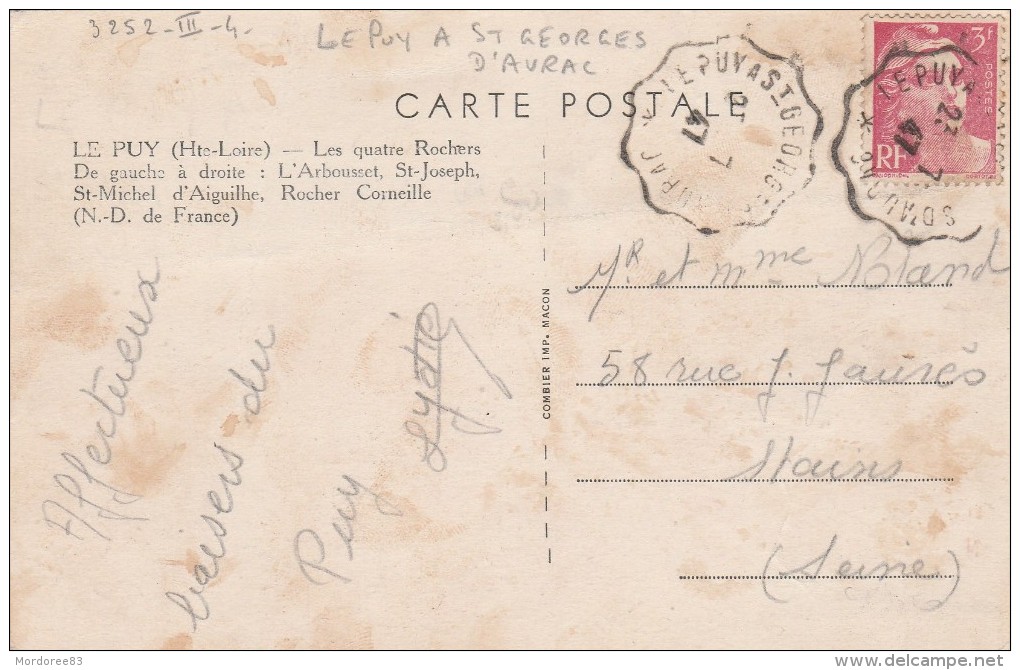 3252-III-4.
LE PUY A ST GEORGES
D'AURAC
CARTE POSTALE
LE PUY (Hte-Loire) — Les quatre Rochers
De gauche à droite : L'Arbousset, St-Joseph,
St-Michel d'Aiguilhe, Rocher Corneille
(N.-D. de France)
Affectueux
baisers du
Puy Lydie
COMBIER IMP. MACON
LE PUY A ST GEORGES D'AURAC
7
47
3F
POSTES
RF
LE PUY A
S D'AURAC
7
47
Mr et Mme
58 rue J. Jaurès
Stains
(Seine)
Mordoree83
delcampe.net